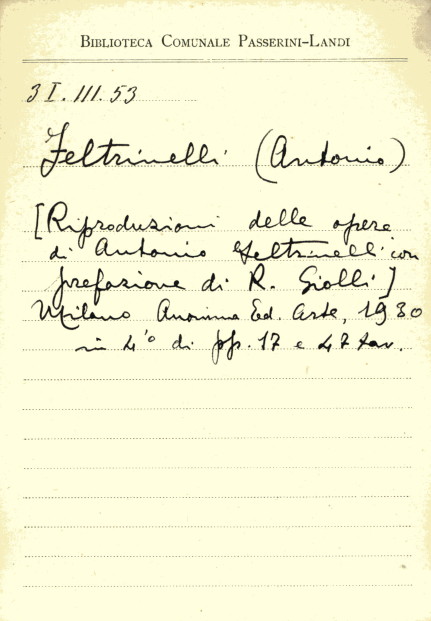 BIBLIOTECA COMUNALE PASSERINI-LANDI
3 I. III. 53
Feltrinelli (Antonio)
[Riproduzioni delle opere
di Antonio Feltrinelli con
prefazione di R. Giolli]
Milano Anonima Ed. Arte, 1930
in 4° di pp. 17 e 47 tav.